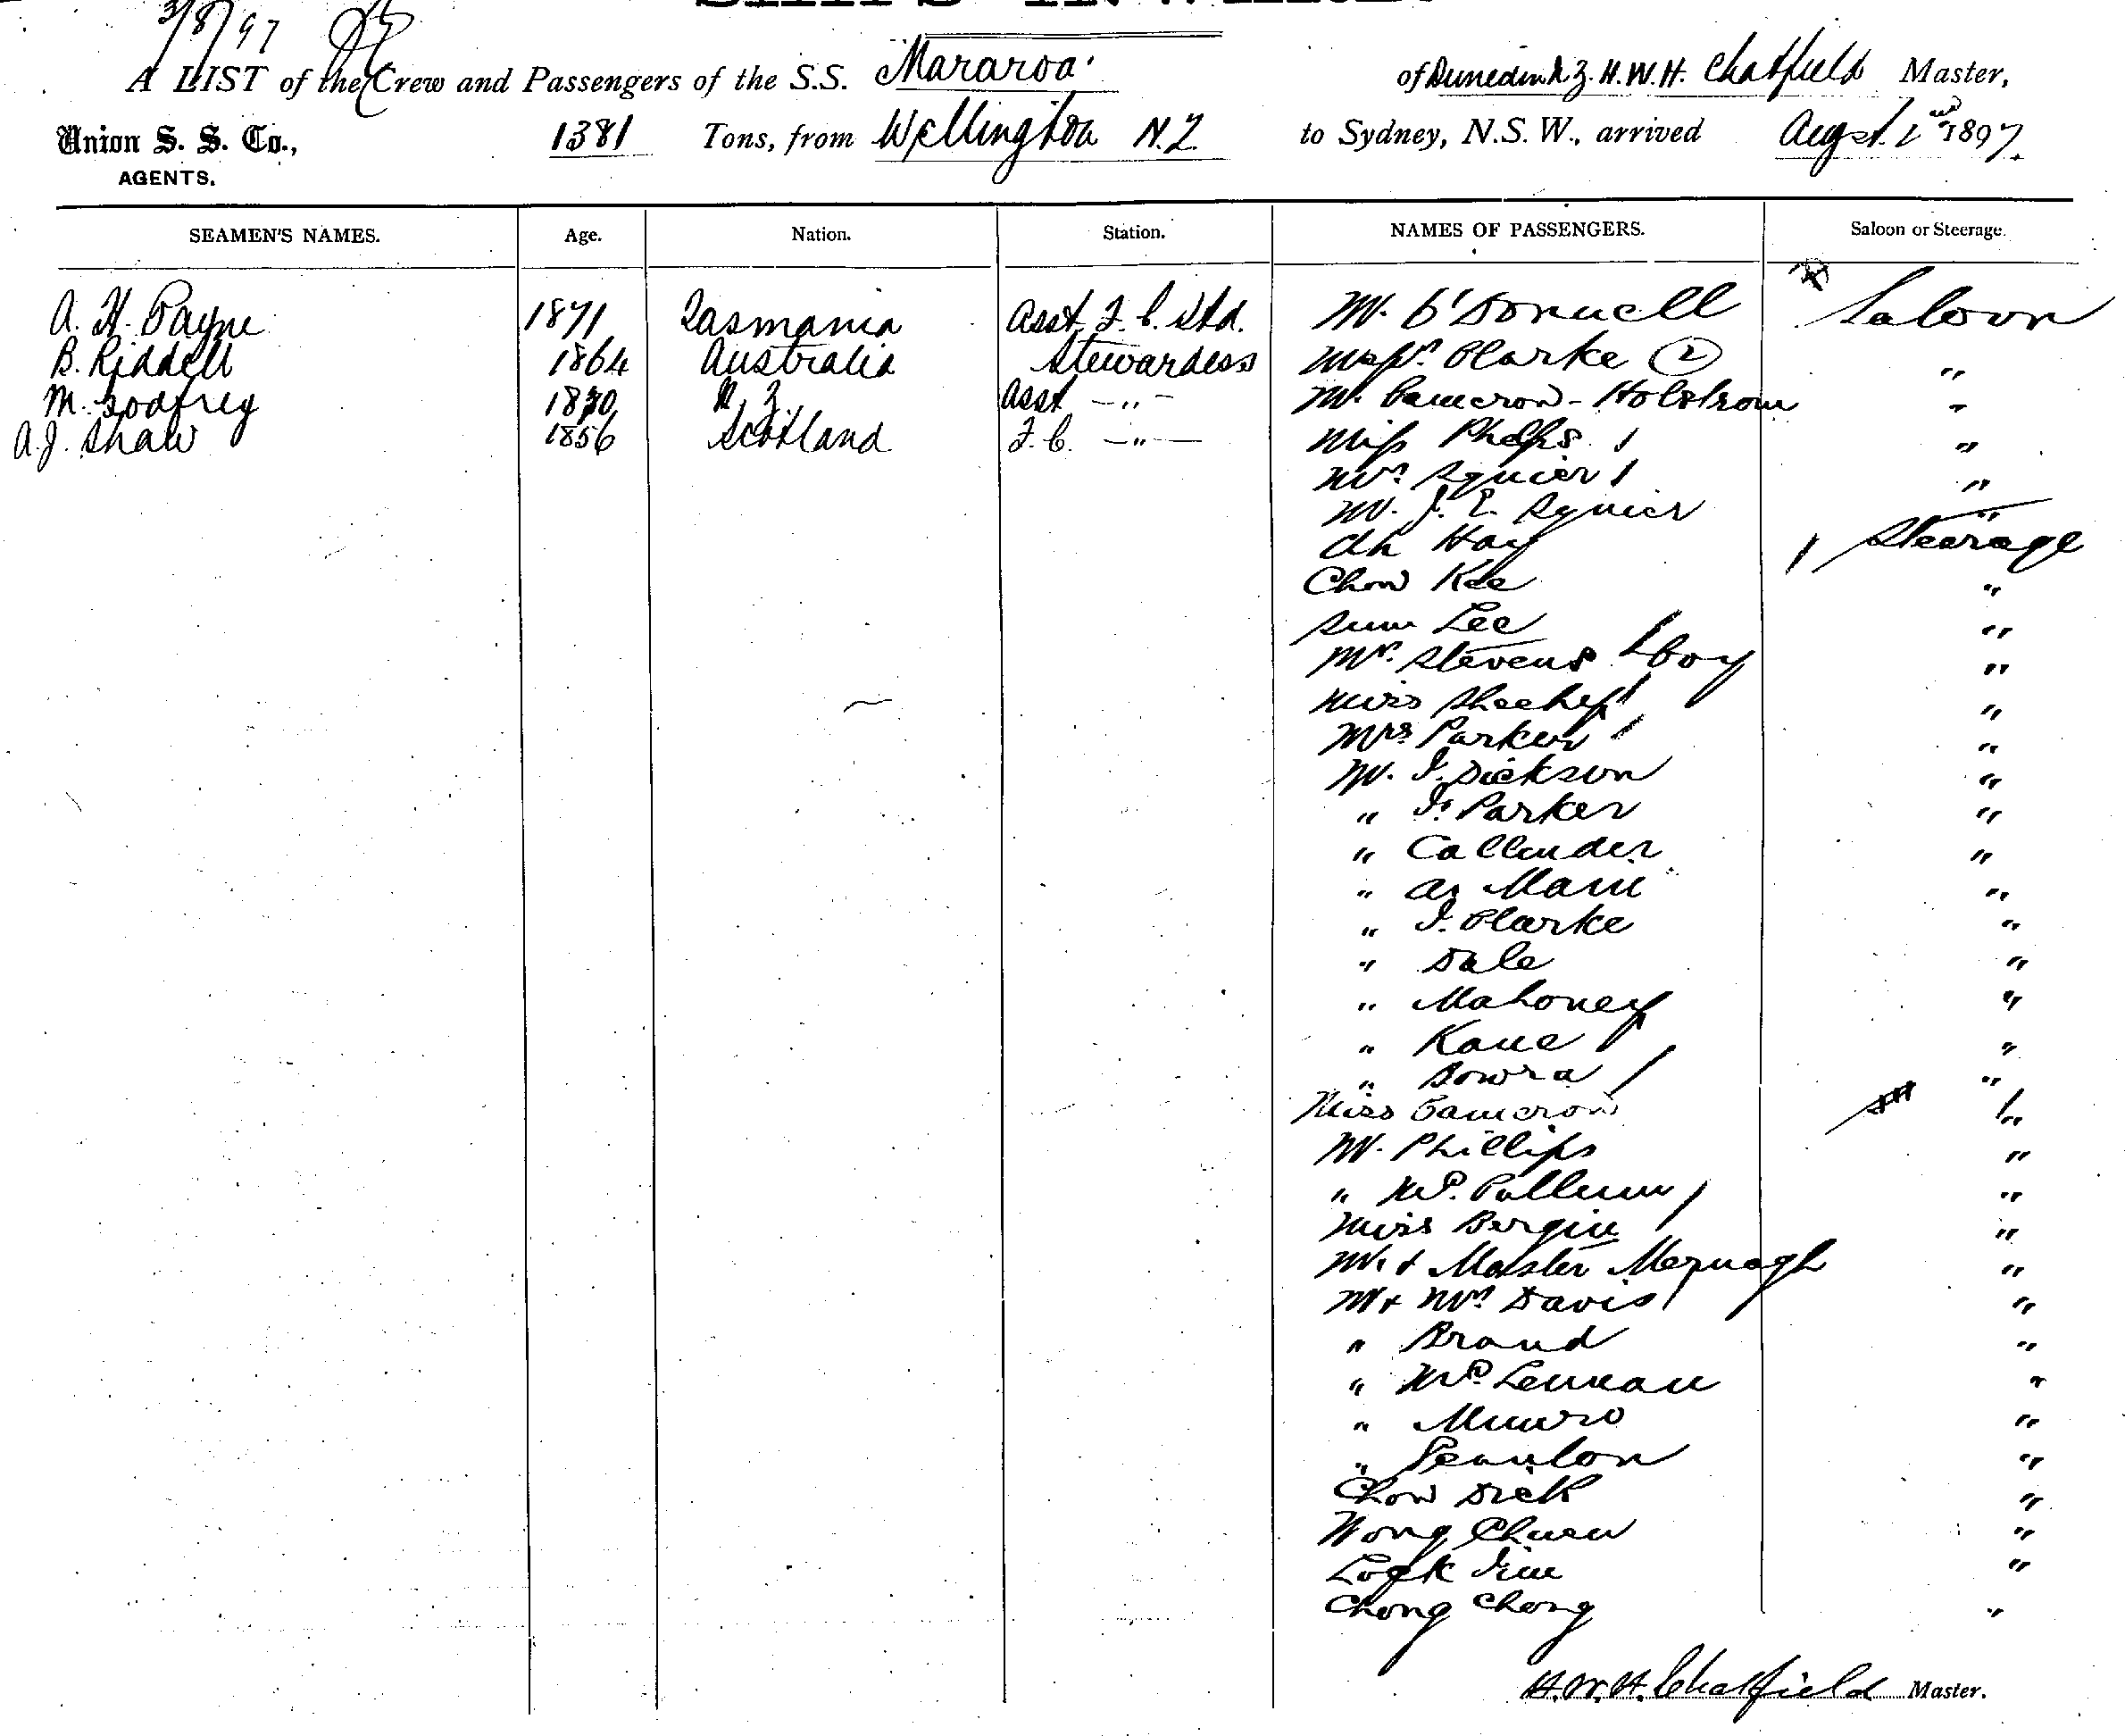 3/8/97
A LIST of the Crew and Passengers of the S.S. Mararoa of Dunedin N.Z. H.W.H. Chatfield Master,
Union S. S. Co., AGENTS. 1381 Tons, from Wellington N.Z. to Sydney, N.S.W., arrived Augst. 2nd 1897.
SEAMEN'S NAMES. Age. Nation. Station. NAMES OF PASSENGERS. Saloon or Steerage.
A. H. Payne 1871 Tasmania Asst. F. C. Std. Mr. O'Donnell Saloon
B. Riddell 1864 Australia Stewardess Clarke 2 "
M. Godfrey 1870 N. Z. Asst — " — Mr. Cameron - "
A.J. Shaw 1856 Scotland F. C. — " — Miss Phelps 1 "
Mrs. Squier 1 "
Mr. J. E. Squier "
Ah Hoy 1 Steerage
Chow Kee "
Sum Lee "
Mrs. Stevens & boy "
Miss Sheehy 1 "
Mrs. Parker 1 "
Mr. J. Dickson "
" J. Parker "
" Callender "
" "
" J. Clarke "
" Dale "
" Mahoney "
" Kane "
" Bowra "
Miss Cameron "
Mr. Phillips "
" McCallum "
Miss Bergin "
Mr. & Master Mernagh "
Mr & Mrs Davis 1 "
" Brand "
" McLennan "
" Munro "
" Scanlon "
Chow Dick "
Wong Chuen "
Lock "
Chong Chong "
H.W.H. Chatfield Master.